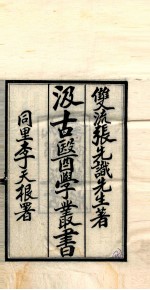 雙流張先識先生著
汲古醫學叢書
同里李天根署